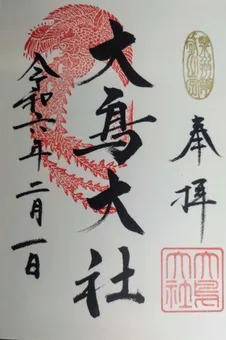 奉拝
大鳥大社
大鳥大社
令和六年二月一日